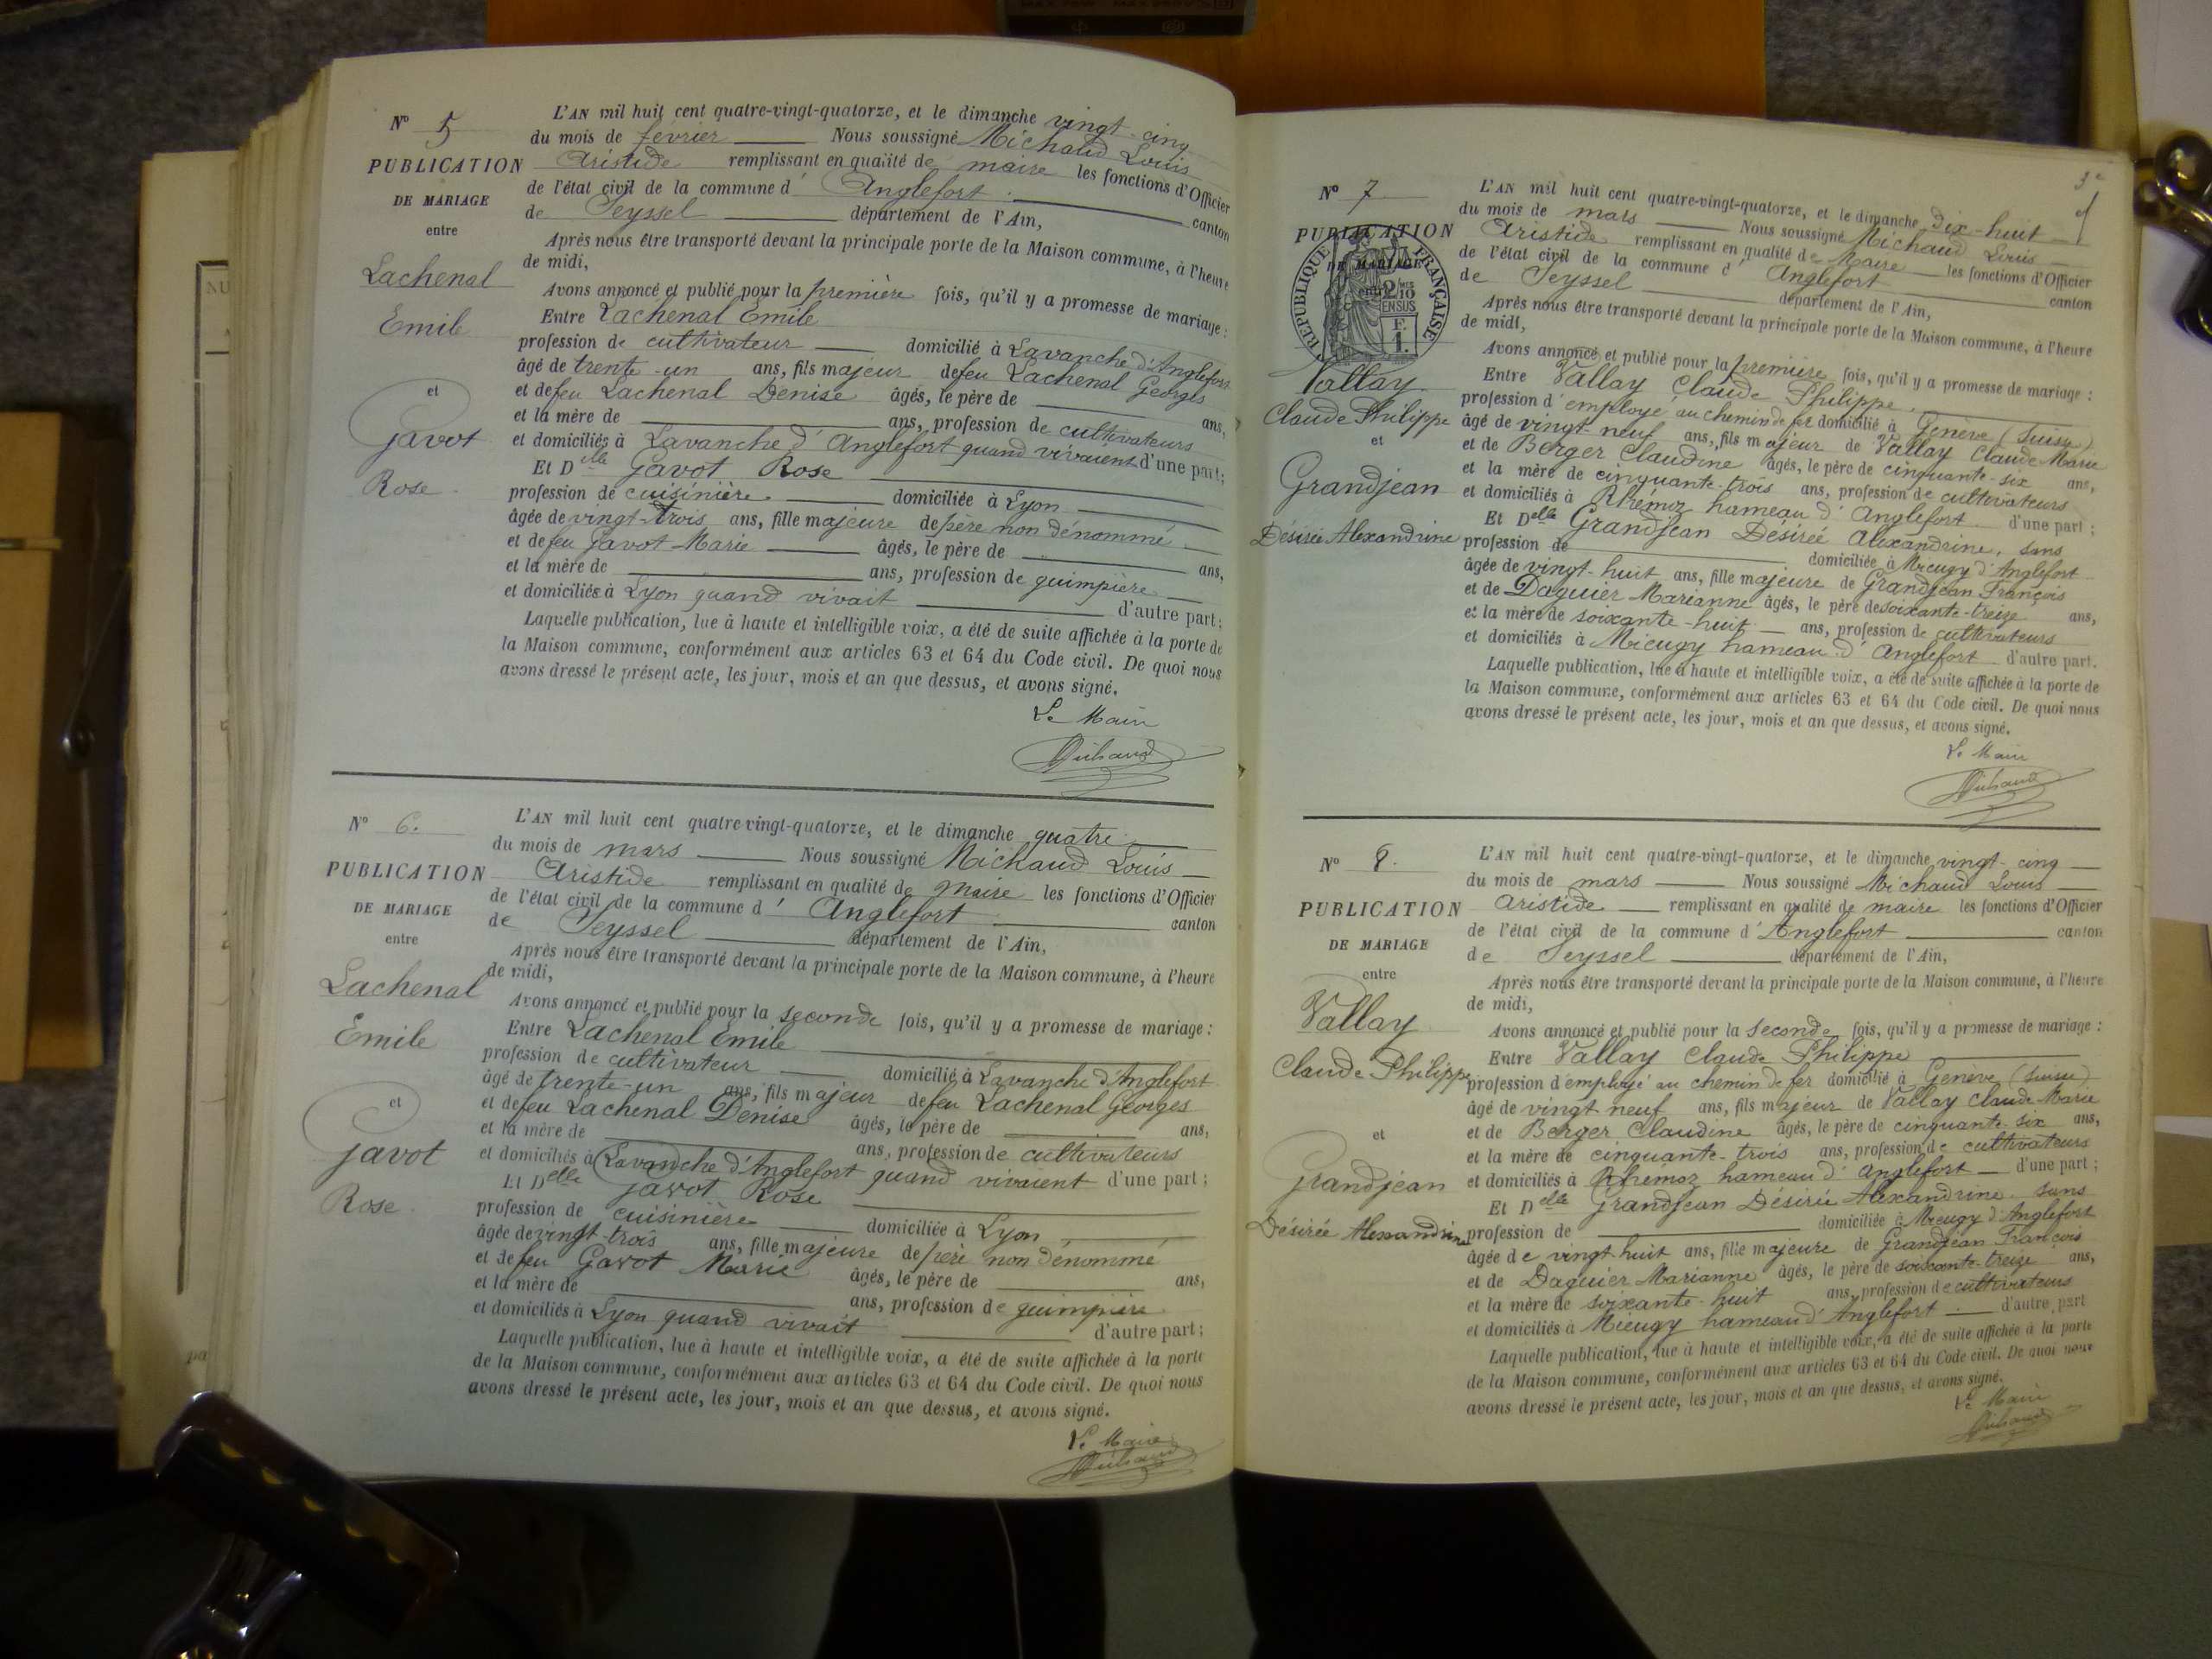 N° 5
PUBLICATION
DE MARIAGE
entre
Lachenal
Emile
et
Gavot
Rose
L'AN mil huit cent quatre-vingt-quatorze, et le dimanche vingt-cinq
du mois de février Nous soussigné Michaud Louis
Aristide remplissant en qualité de maire les fonctions d'Officier
de l'état civil de la commune d' Anglefort canton
de Seyssel département de l'Ain,
Après nous être transporté devant la principale porte de la Maison commune, à l'heure
de midi,
Avons annoncé et publié pour la première fois, qu'il y a promesse de mariage :
Entre Lachenal Emile
profession de cultivateur domicilié à Lavanche d'Anglefort
âgé de trente-un ans, fils majeur de feu Lachenal Georges
et de feu Lachenal Denise âgés, le père de ans,
et la mère de ans, profession de cultivateurs
et domiciliés à Lavanche d'Anglefort quand vivaient d'une part;
Et Delle Gavot Rose
profession de cuisinière domiciliée à Lyon
âgée de vingt-trois ans, fille majeure de père non dénommé
et de feu Gavot Marie âgés, le père de ans,
et la mère de ans, profession de guimpière
et domiciliés à Lyon quand vivait d'autre part;
Laquelle publication, lue à haute et intelligible voix, a été de suite affichée à la porte de
la Maison commune, conformément aux articles 63 et 64 du Code civil. De quoi nous
avons dressé le présent acte, les jour, mois et an que dessus, et avons signé.
Le Maire
Michaud
N° 6.
PUBLICATION
DE MARIAGE
entre
Lachenal
Emile
et
Gavot
Rose.
L'AN mil huit cent quatre-vingt-quatorze, et le dimanche quatre
du mois de mars Nous soussigné Michaud Louis
Aristide remplissant en qualité de maire les fonctions d'Officier
de l'état civil de la commune d' Anglefort canton
de Seyssel département de l'Ain,
Après nous être transporté devant la principale porte de la Maison commune, à l'heure
de midi,
Avons annoncé et publié pour la seconde fois, qu'il y a promesse de mariage :
Entre Lachenal Emile
profession de cultivateur domicilié à Lavanche d'Anglefort
âgé de trente-un ans, fils majeur de feu Lachenal Georges
et de feu Lachenal Denise âgés, le père de ans,
et la mère de ans, profession de cultivateurs
et domiciliés à Lavanche d'Anglefort quand vivaient d'une part ;
Et Delle Gavot Rose
profession de cuisinière domiciliée à Lyon
âgée de vingt-trois ans, fille majeure de père non dénommé
et de feu Gavot Marie âgés, le père de ans,
et la mère de ans, profession de guimpière
et domiciliés à Lyon quand vivait d'autre part ;
Laquelle publication, lue à haute et intelligible voix, a été de suite affichée à la porte
de la Maison commune, conformément aux articles 63 et 64 du Code civil. De quoi nous
avons dressé le présent acte, les jour, mois et an que dessus, et avons signé.
Le Maire
Michaud
N° 7
PUBLICATION
DE MARIAGE
entre
RÉPUBLIQUE FRANÇAISE
Vallay
Claude Philippe
et
Grandjean
Désirée Alexandrine
L'AN mil huit cent quatre-vingt-quatorze, et le dimanche dix-huit
du mois de mars Nous soussigné Michaud Louis
Aristide remplissant en qualité de Maire les fonctions d'Officier
de l'état civil de la commune d' Anglefort canton
de Seyssel département de l'Ain,
Après nous être transporté devant la principale porte de la Maison commune, à l'heure
de midi,
Avons annoncé et publié pour la première fois, qu'il y a promesse de mariage :
Entre Vallay Claude Philippe
profession d'employé au chemin de fer domicilié à Genève (Suisse)
âgé de vingt-neuf ans, fils majeur de Vallay Claude Marie
et de Berger Claudine âgés, le père de cinquante-six ans,
et la mère de cinquante-trois ans, profession de cultivateurs
et domiciliés à Rhémoz hameau d'Anglefort d'une part ;
Et Delle Grandjean Désirée Alexandrine, sans
profession de domiciliée à Mieugy d'Anglefort
âgée de vingt-huit ans, fille majeure de Grandjean François
et de Daguier Marianne âgés, le père de soixante-treize ans,
et la mère de soixante-huit ans, profession de cultivateurs
et domiciliés à Mieugy hameau d'Anglefort d'autre part.
Laquelle publication, lue à haute et intelligible voix, a été de suite affichée à la porte de
la Maison commune, conformément aux articles 63 et 64 du Code civil. De quoi nous
avons dressé le présent acte, les jour, mois et an que dessus, et avons signé.
Le Maire
Michaud
N° 8.
PUBLICATION
DE MARIAGE
entre
Vallay
Claude Philippe
et
Grandjean
Désirée Alexandrine
L'AN mil huit cent quatre-vingt-quatorze, et le dimanche vingt-cinq
du mois de mars Nous soussigné Michaud Louis
Aristide remplissant en qualité de maire les fonctions d'Officier
de l'état civil de la commune d' Anglefort canton
de Seyssel département de l'Ain,
Après nous être transporté devant la principale porte de la Maison commune, à l'heure
de midi,
Avons annoncé et publié pour la seconde fois, qu'il y a promesse de mariage :
Entre Vallay Claude Philippe
profession d'employé au chemin de fer domicilié à Genève (Suisse)
âgé de vingt neuf ans, fils majeur de Vallay Claude Marie
et de Berger Claudine âgés, le père de cinquante-six ans,
et la mère de cinquante-trois ans, profession de cultivateurs
et domiciliés à Rhémoz hameau d'Anglefort d'une part ;
Et Delle Grandjean Désirée Alexandrine sans
profession de domiciliée à Mieugy d'Anglefort
âgée de vingt-huit ans, fille majeure de Grandjean François
et de Daguier Marianne âgés, le père de soixante-treize ans,
et la mère de soixante-huit ans, profession de cultivateurs
et domiciliés à Mieugy hameau d'Anglefort d'autre part
Laquelle publication, lue à haute et intelligible voix, a été de suite affichée à la porte
de la Maison commune, conformément aux articles 63 et 64 du Code civil. De quoi nous
avons dressé le présent acte, les jour, mois et an que dessus, et avons signé.
Le Maire
Michaud